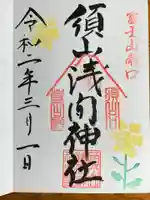 富士山南口
須山浅間神社
令和二年三月一日